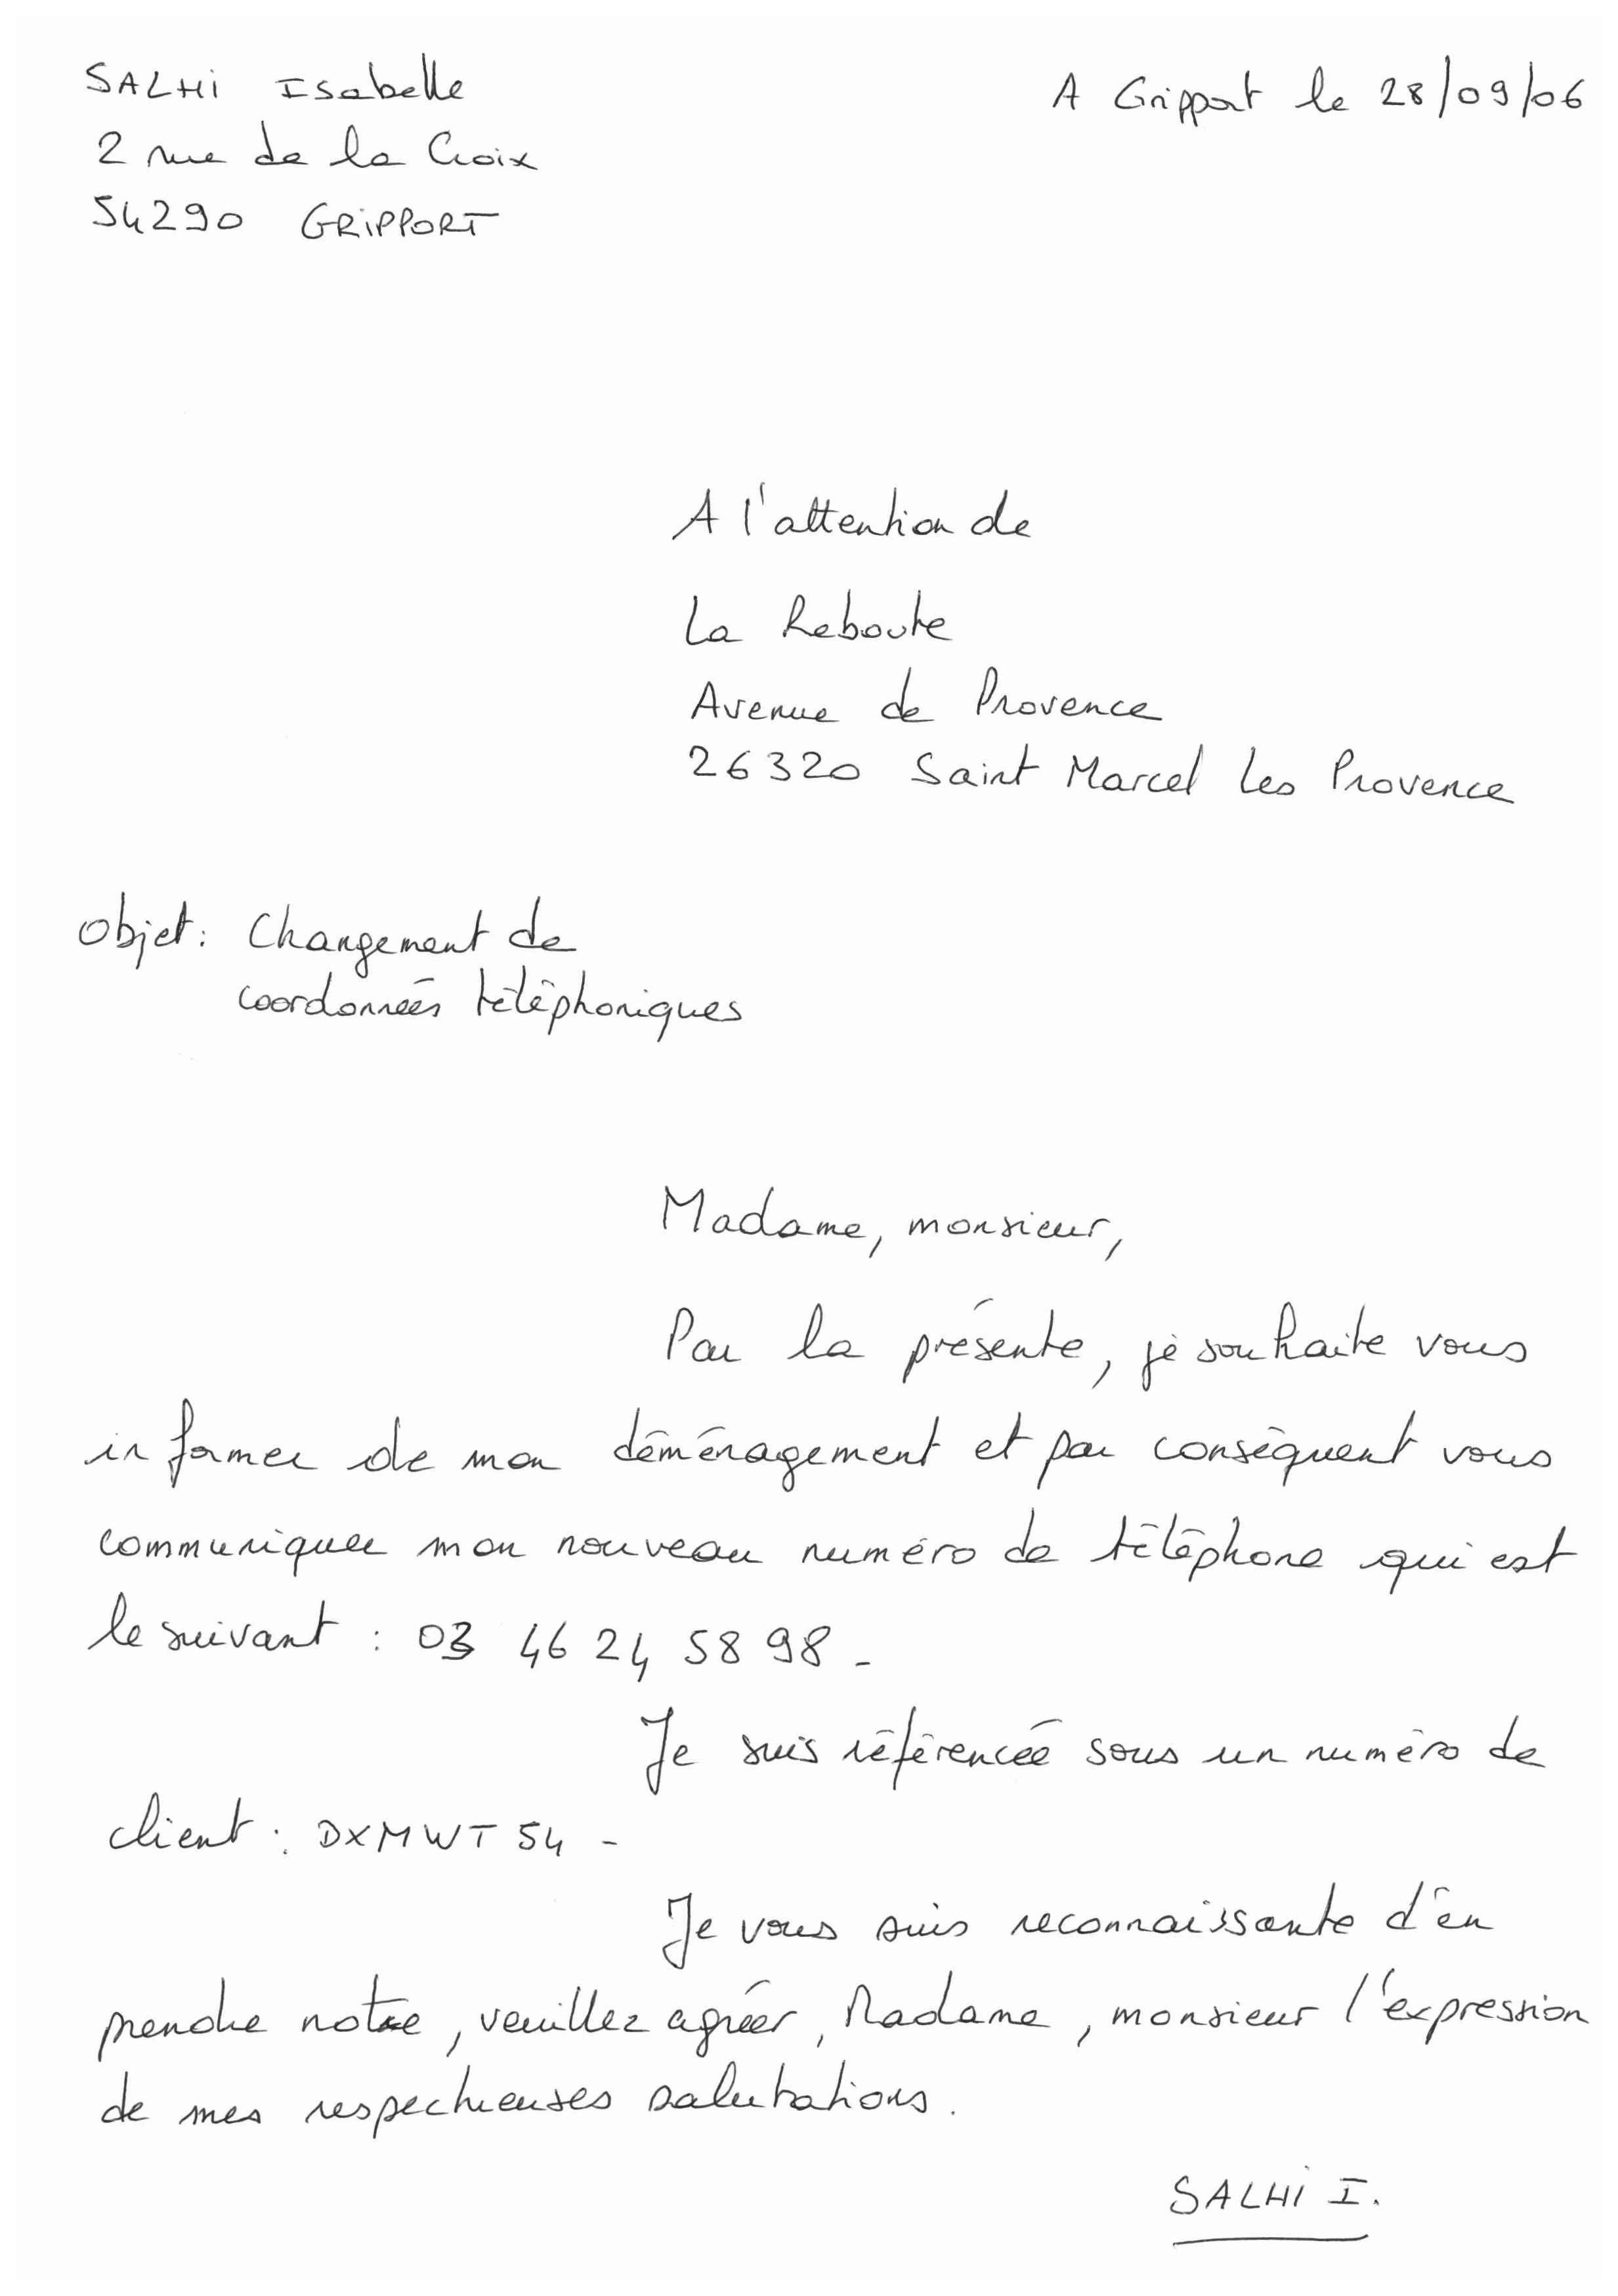 SALHi Isabelle
A Gripport le 28/09/06
2 rue de la Croix
54290 GRiPPORT
A l'attention de
La Reboute
Avenue de Provence
26320 Saint Marcel Les Provence
Objet : Changement de
coordonnées téléphoniques
Madame, monsieur,
Par la présente, je souhaite vous
informer de mon déménagement et par conséquent vous
communiquer mon nouveau numéro de téléphone qui est
le suivant : 03 46 24 58 98 -
Je suis référencée sous un numéro de
client : DXMWT 54 -
Je vous suis reconnaissante d'en
prendre note, veuillez agréer, Madame, monsieur l'expression
de mes respectueuses salutations.
SALHi I.